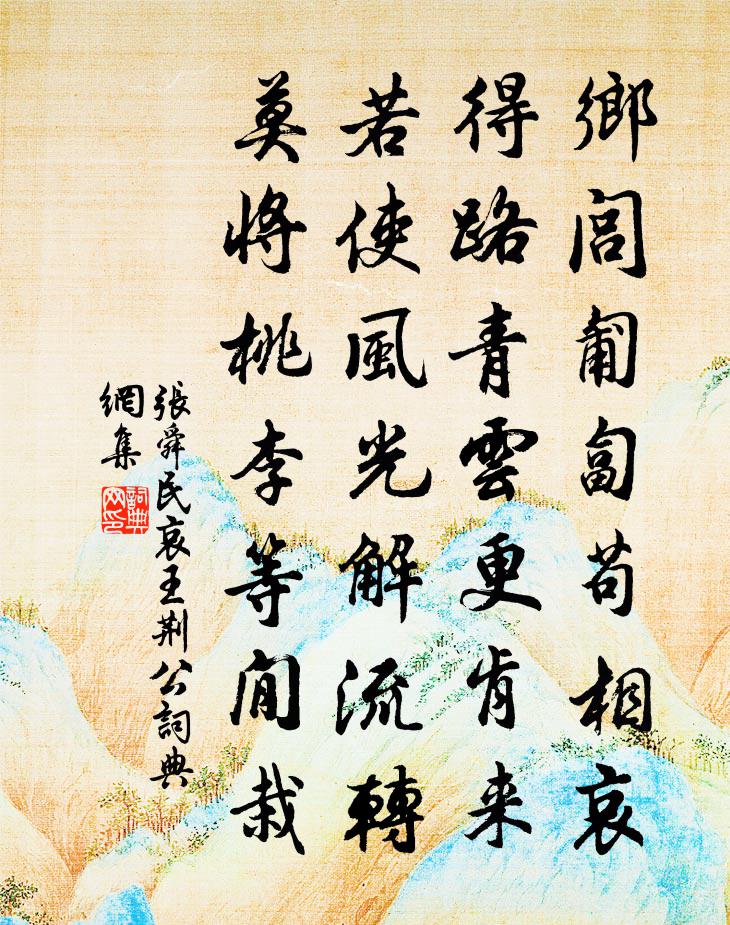 鄉閭匍匐苟相哀
得路青雲更肯来
若使風光解流轉
莫將桃李等閒栽
張舜民哀王荆公詞典
網集
詞典
网印